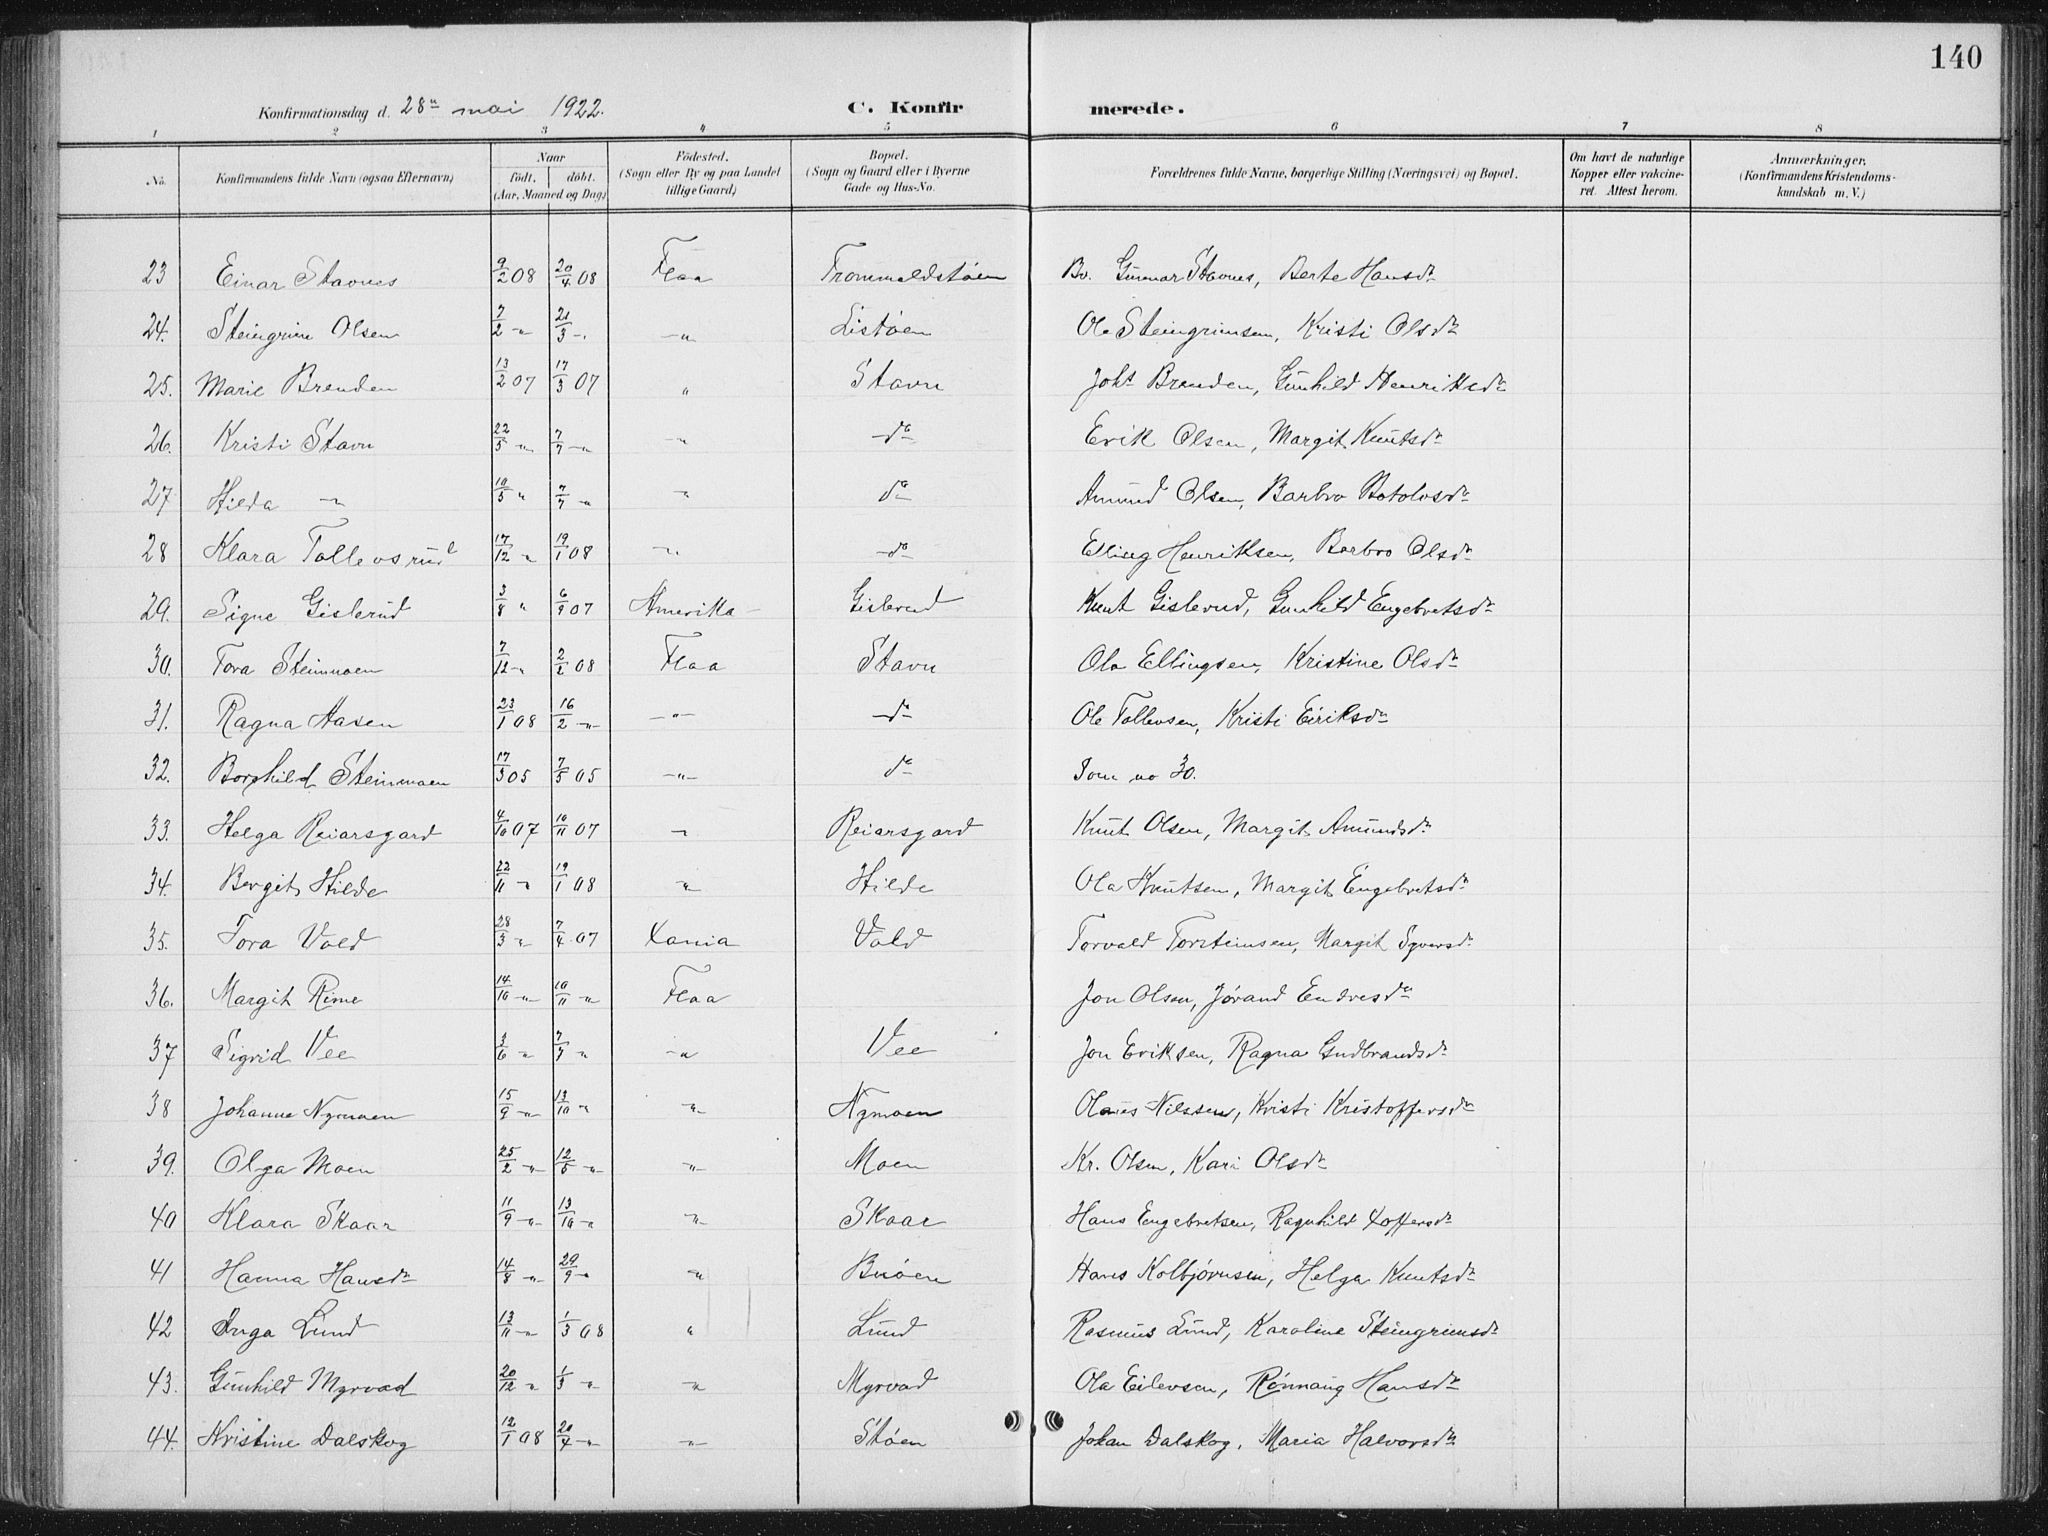 140
Konfirmationsdag d. 28de mai 1922. C. Konfirmerede.
1 2 3 4 5 6 7 8
No. Konfirmandens fulde Navn (ogsaa Efternavn) Naar født. døbt. (Aar, Maaned og Dag) Fødested. (Sogn eller By og paa Landet tillige Gaard) Bopæl. (Sogn og Gaard eller i Byerne Gade og Hus-No. Forældrenes fulde Navne, borgerlige Stilling (Næringsvei) og Bopæl. Om havt de naturlige Kopper eller vakcineret. Attest herom. Anmærkninger. (Konfirmandens Kristendomskundskab m. V.)
23 Einar Stavnes 9/2 08 20/4 08 Flaa Trommaldstøen Bv. Gunnar Stavnes, Berte Hansdr
24. Steingrim Olsen 7/2 -"- 21/3 -"- -"- Listøen Ole Steingrimsen, Kristi Olsdr
25. Marie Brenden 13/2 07 17/3 07 " Stavn Johs Brenden, Gunhild Henriksdr
26. Kristi Stavn 22/5 -"- 7/7 -"- -"- do Erik Olsen, Margit Knutsdr
27 Hilda -"- 10/5 " 7/7 -"- " do Amund Olsen, Barbro Botolvsdr
28 Klara Tollevsrud 17/12 -"- 19/1 08 -"- do Elling Henriksen, Barbro Olsdr
29. Signe Gislerud 3/8 " 6/9 07 Amerika - Gislerud Knut Gislerud, Gunhild Engebretsdr
30. Tora Steinmoen 7/12 -"- 2/2 08 Flaa Stavn Ola Ellingsen, Kristine Olsdr
31. Ragna Hasen 23/1 08 16/2 -"- -"- do Ole Tollevsen, Kristi Eiriksdr
32. Borghild Steinmoen 17/3 05 7/5 05 -"- do Som no 30.
33. Helga Reiarsgard 4/10 07 10/11 07 -"- Reiarsgard Knut Olsen, Margit Amundsdr
34. Bergit Hilde 22/11 -"- 19/1 08 -"- Hilde Ola Knutsen, Margit Engebretsdr
35. Tora Vold 28/3 -"- 7/4 07 Xania Vold Torvald Torsteinsen, Margit Syversdr
36. Margit Rime 14/10 -"- 10/11 -"- Flaa Jon Olsen, Jørand Endresdr
37 Sigrid Vee 3/6 -"- 7/7 " -"- Vee Jon Eriksen, Ragna Gudbrandsdr
38 Johanne Nymoen 15/9 -"- 13/10 " -"- Nymoen Olaus Nilssen, Kristi Kristoffersdr
39. Olga Moen 25/2 -"- 12/5 -"- -"- Moen Kr. Olsen, Kari Olsdr
40 Klara Skaar 11/9 -"- 13/10 -"- -"- Skaar Hans Engebretsen, Ragnhild Xoffersdr
41 Hanna Hansdr 14/8 -"- 29/9 -"- -"- Buøen Hans Kolbjørnsen, Helga Knutsdr
42 Inga Lund 13/11 -"- 1/3 08 " Lund Rasmus Lund, Karoline Steingrimsdr
43. Gunhild Myrvad 20/12 -"- 1/3 " -"- Myrvad Ola Eilevsen, Rønnaug Hansdr
44. Kristine Dalskog 12/1 08 20/4 -"- -"- Støen Johan Dalskog, Maria Halvorsdr